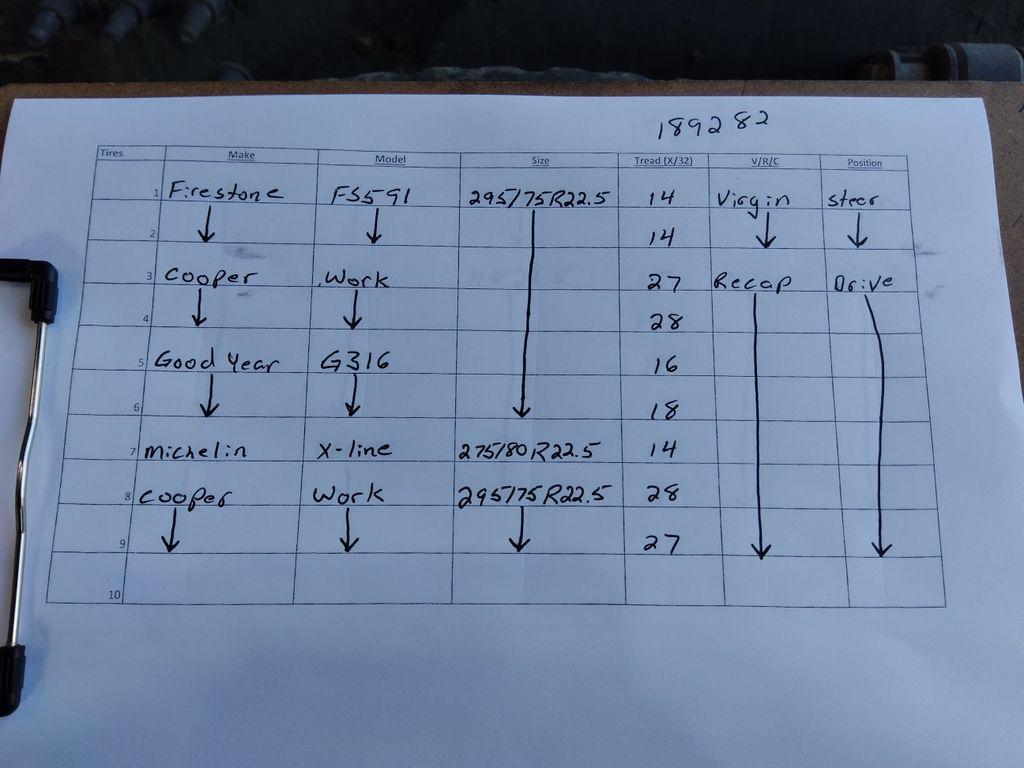 189282
Tires Make Model Size Tread (X/32) V/R/C Position
1 Firestone FS591 295/75R22.5 14 Virgin steer
2 ↓ ↓ 14 ↓ ↓
3 Cooper Work 27 Recap Drive
4 ↓ ↓ 28
5 Good Year G316 16
6 ↓ ↓ ↓ 18
7 Michelin X-line 275/80R22.5 14
8 Cooper Work 295/75R22.5 28
9 ↓ ↓ ↓ 27 ↓ ↓
10